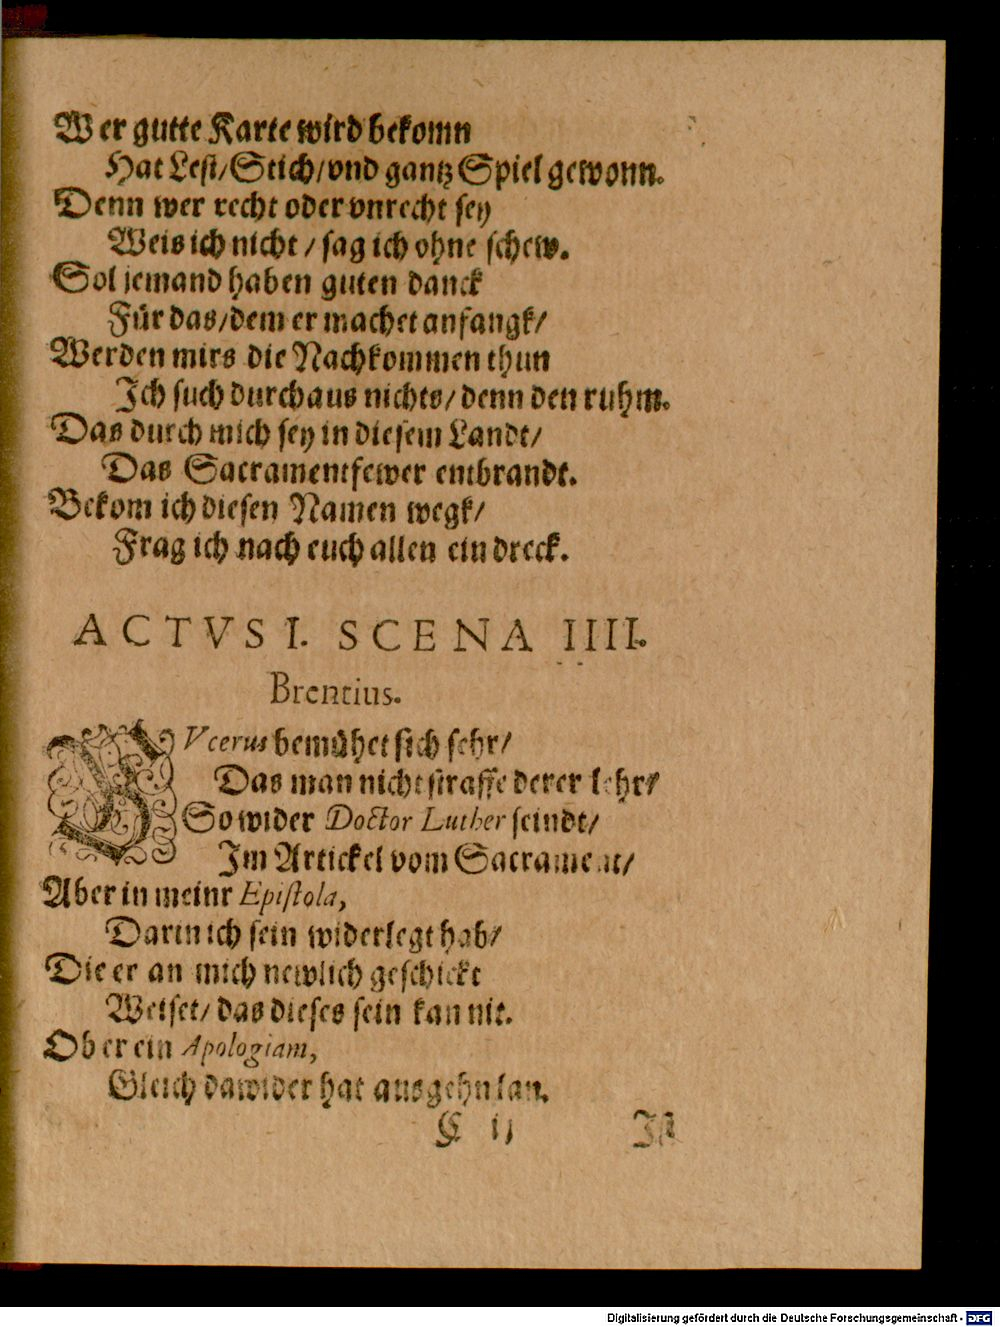 Wer gutte Karte wird bekomn
Hat Lest/Stich/vnd gantz Spiel gewonn.
Denn wer recht oder vnrecht sey
Weis ich nicht / sag ich ohne schew.
Sol jemand haben guten danck
Für das/dem er machet anfangk/
Werden mirs die Nachkommen thun
Ich such durchaus nichts/ denn den ruhm.
Das durch mich sey in diesem Landt/
Das Sacramentfewer entbrandt.
Bekom ich diesen Namen wegk/
Frag ich nach euch allen ein dreck.
ACTVS I. SCENA IIII.
Brentius.
BVcerus bemühet sich sehr/
Das man nicht straffe derer lehr/
So wider Doctor Luther seindt/
Im Artickel vom Sacrament/
Aber in meinr Epistola,
Darin ich sein widerlegt hab/
Die er an mich newlich geschickt
Weiset/ das dieses sein kan nit.
Ob er ein Apologiam,
Gleich dawider hat ausgehn lan.
C ij Ist
Digitalisierung gefördert durch die Deutsche Forschungsgemeinschaft - DFG